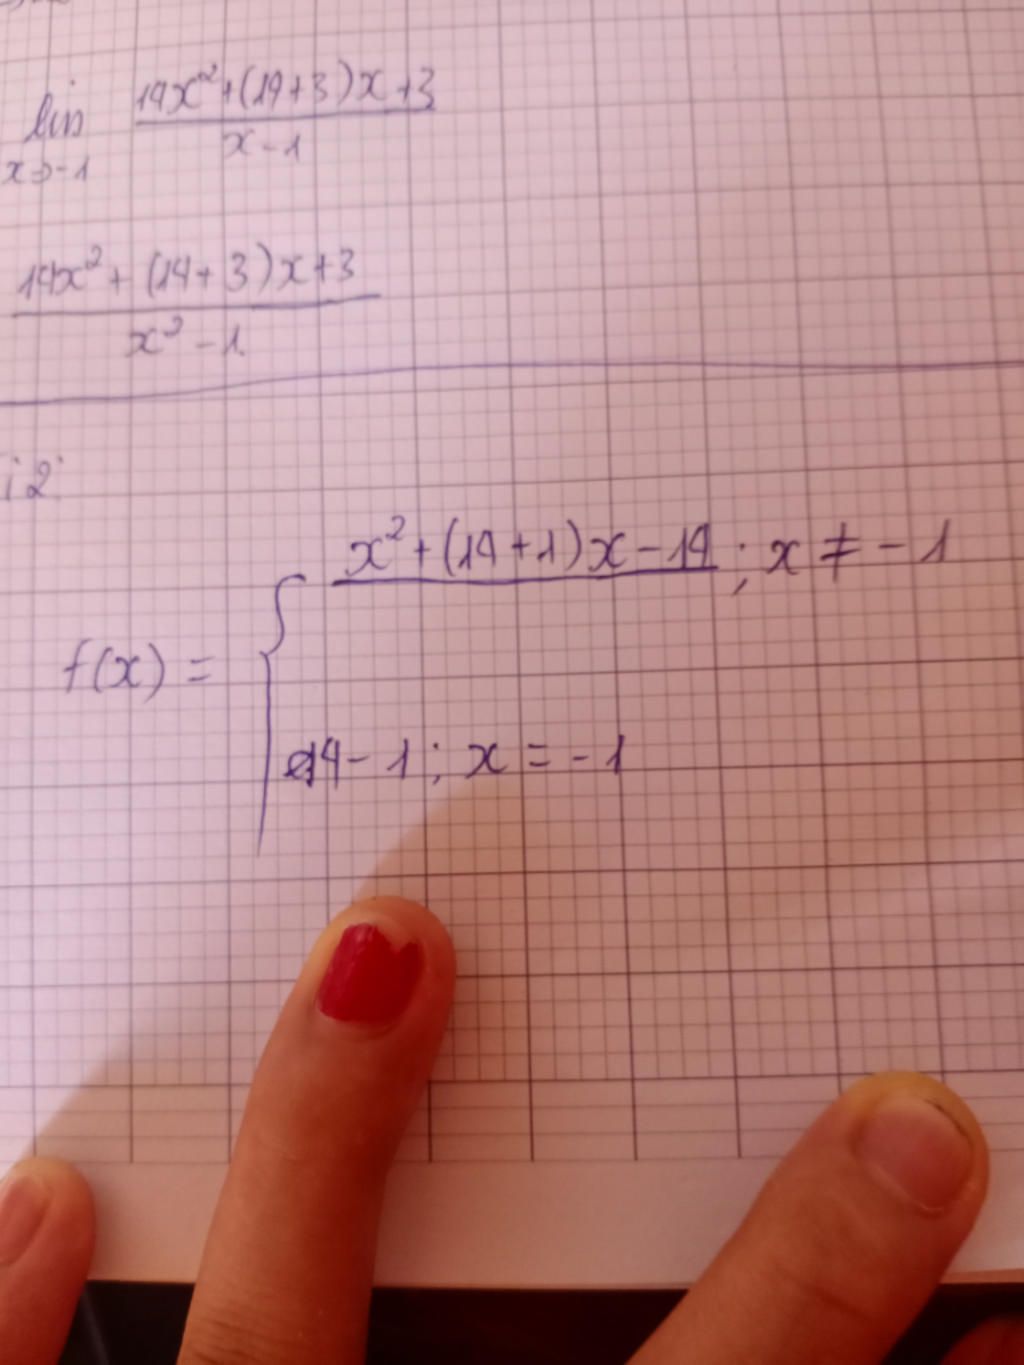 lim 14x²+(14+3)x+3
x→-1 x-1
14x² + (14+3)x+3
x² - 1
i2
x²+(14+1)x-14 ; x ≠ -1
f(x) =
14-1 ; x = -1